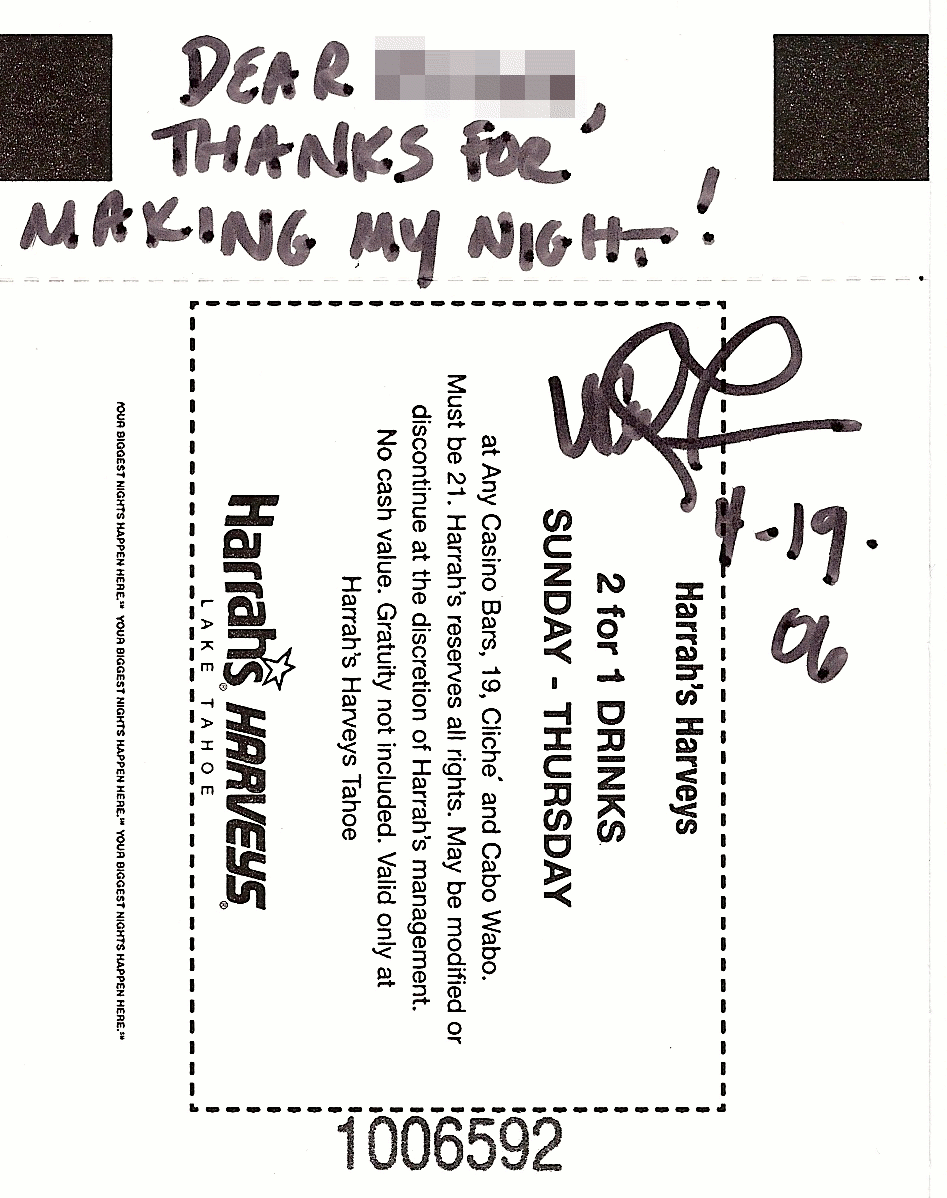 DEAR
THANKS FOR
MAKING MY NIGHT!
4.19.
06
Harrah's Harveys
2 for 1 DRINKS
SUNDAY - THURSDAY
at Any Casino Bars, 19, Cliché and Cabo Wabo.
Must be 21. Harrah's reserves all rights. May be modified or
discontinue at the discretion of Harrah's management.
No cash value. Gratuity not included. Valid only at
Harrah's Harveys Tahoe
Harrah's® HARVEYS®
LAKE TAHOE
YOUR BIGGEST NIGHTS HAPPEN HERE.℠ YOUR BIGGEST NIGHTS HAPPEN HERE.℠ YOUR BIGGEST NIGHTS HAPPEN HERE.℠
1006592